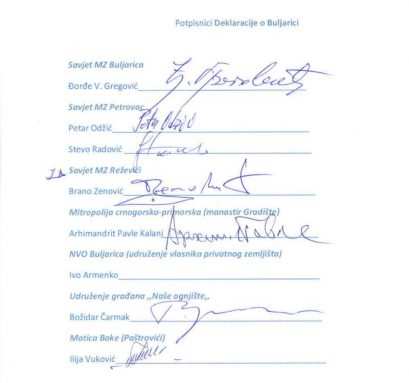 Potpisnici Deklaracije o Buljarici
Savjet MZ Buljarica
Đorđe V. Gregović
Savjet MZ Petrovac
Petar Odžić Petar Odžić
Stevo Radović
Savjet MZ Reževići
Brano Zenović
Mitropolija crnogorsko-primorska (manastir Gradište)
Arhimandrit Pavle Kalanj
NVO Buljarica (udruženje vlasnika privatnog zemljišta)
Ivo Armenko
Udruženje građana ,,Naše ognjište,,
Božidar Čarmak
Matica Boke (Paštrovići)
Ilija Vuković